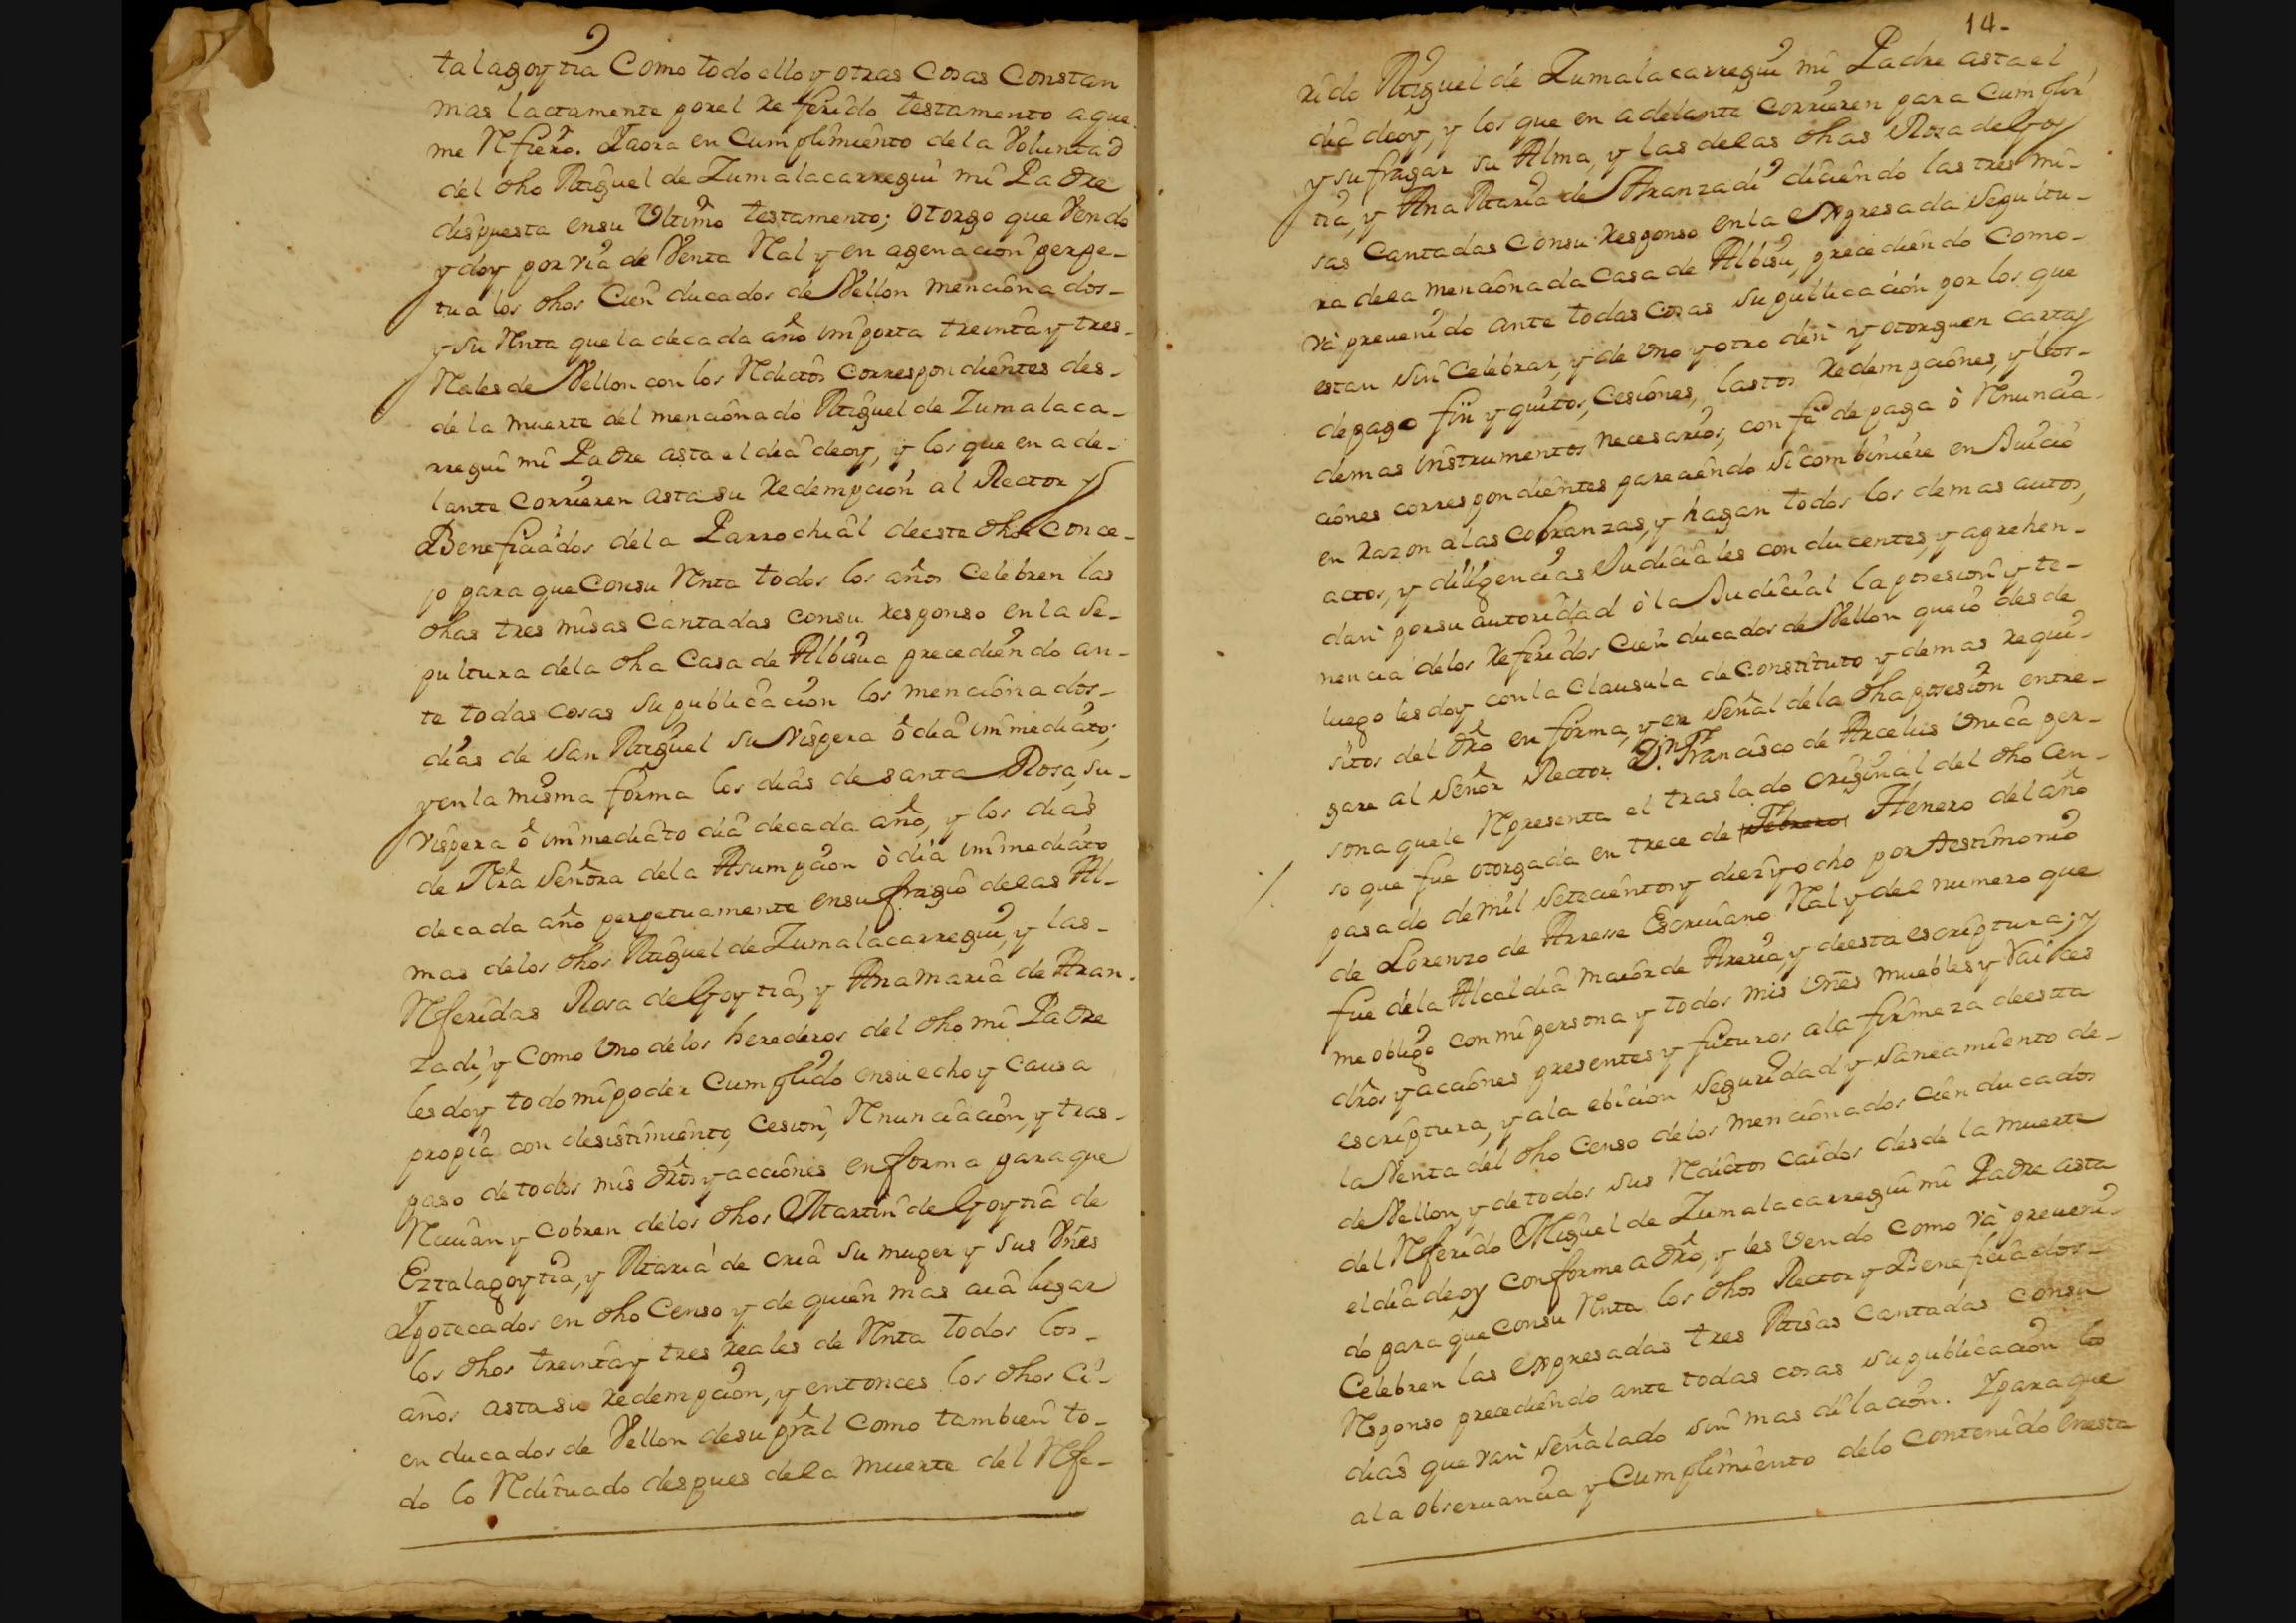 talagoytia Como todo ello y otras Cosas Constan
mas lactamente por el Referido testamento a que
me Rfiero. Yaora en Cumplimiento de la Voluntad
del dho Miguel de Zumalacarregui mi Padre
dispuesta ensu Ultimo testamento; otorgo que Vendo
y doy por via de Venta Ral y en agenacion perpe-
tua los dhos Cien ducados de Vellon mencionados-
y su Rnta que la de cada año importa treinta y tres-
Rales de Vellon con los Rditos correspondientes des-
de la muerte del mencionado Miguel de Zumalaca-
rregui mi Padre asta el dia deoy, y los que en ade-
lante corrieren asta su Redempcion al Rector y
Beneficiados dela Parrochial deeste dho conce-
jo para que Consu Rnta todos los años Celebren las
dhas tres misas Cantadas consu responso en la Se-
pultura dela dha Casa de Albisua precediendo an-
te todas cosas su publicacion los mencionados-
dias de San Miguel su Vispera ò dia immediato;
y en la misma forma los dias de santa Rosa, su-
vispera ò immediato dia decada año, y los dias
de Nra Señora dela Asumpcion ò dia immediato
decada año perpetuamente ensufragio delas Al-
mas delos dhos Miguel de Zumalacarregui, y las-
Rferidas Rosa de Goytia, y Ana maria de Aran-
zadi, y Como Uno delos herederos del dho mi Padre
les doy todo mi poder Cumplido ensu echo y Causa
propia con desistimiento, Cesion, Rnunciacion, y tras-
paso de todos mis dros y acciones en forma para que
Rciuan y cobren delos dhos Martin de Goytia de
Eztalagoytia, y Maria de oria su muger y sus Vnes
Ypotecados en dho Censo y de quien mas aia lugar
los dhos treinta y tres Reales de Rnta todos los-
años asta su Redempcion, y entonces los dhos Ci-
en ducados de Vellon desu pral como tambien to-
do lo Rdituado despues dela muerte del Rfe-
14-
rido Miguel de Zumalacarregui mi Padre asta el
dia deoy, y los que en adelante corrieren para Cumplir
y sufragar su Alma, y las delas dhas Rosa de Goy
tia, y Ana Maria de Aranzadi diciendo las tres mi-
sas Cantadas Consu Responso en la Expresada Sepultu-
ra dela mencionada Casa de Albisu, precediendo Como-
và preuenido ante todas Cosas su publicacion por los que
estan sin Celebrar, y de Uno y otro den y otorguen cartas
depago fin y quitos, Cesiones, lastos Redempciones, y los-
demas instrumentos necesarios, con fè de paga ò Rnuncia-
ciones correspondientes pareciendo si combiniere en Juicio
en Razon alas Cobranzas, y hagan todos los demas autos,
actos, y diligencias Judiciales conducentes, y aprehen-
dan por su autoridad ò la Judicial la posesion y te-
nencia delos Referidos Cien ducados de Vellon que io desde
luego les doy con la Clausula de Constituto y demas requi-
sitos del dro en forma, y en Señal dela dha posesion entre-
gare al Señor Rector Dn. Francisco de Arcelus Unica per-
sona quele Rpresenta el traslado original del dho Cen-
so que fue otorgada en trece de Febrero Henero del año
pasado de mil Setecientos y diez y ocho por testimonio
de Lorenzo de Arresse Escriuano Ral y del numero que
fue dela Alcaldia maior de Areria, y deesta escriptura; y
me obligo con mi persona y todos mis Vnes muebles y Raices
dros y acciones presentes y futuros ala firmeza deesta
escriptura, y ala ebicion seguridad y saneamiento de-
la Venta del dho Censo delos mencionados cien ducados
de Vellon, y de todos sus Rditos caidos desde la muerte
del Rferido Miguel de Zumalacarregui mi Padre asta
el dia deoy conforme a dro, y les vendo como và preueni-
do para que Consu Rnta los dhos Rector y Beneficiados-
Celebren las expresadas tres Misas Cantadas consu
Rsponso precediendo ante todas cosas su publicacion los
dias que van señalado sin mas dilacion. Y para que
ala obseruancia y Cumplimiento delo Contenido enesta